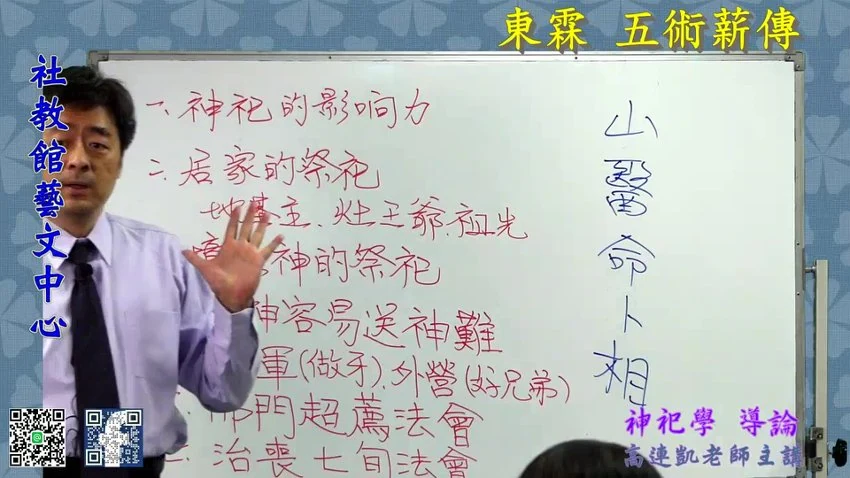 東霖 五術薪傳
社教館藝文中心
一、神祀的影响力
二、居家的祭祀
地基主、灶王爺、祖先
神的祭祀
神容易送神難
軍(做牙)、外營(好兄弟)
部門超薦法會
治喪七旬法會
山醫命卜相
神祀學 導論
高連凱老師主講